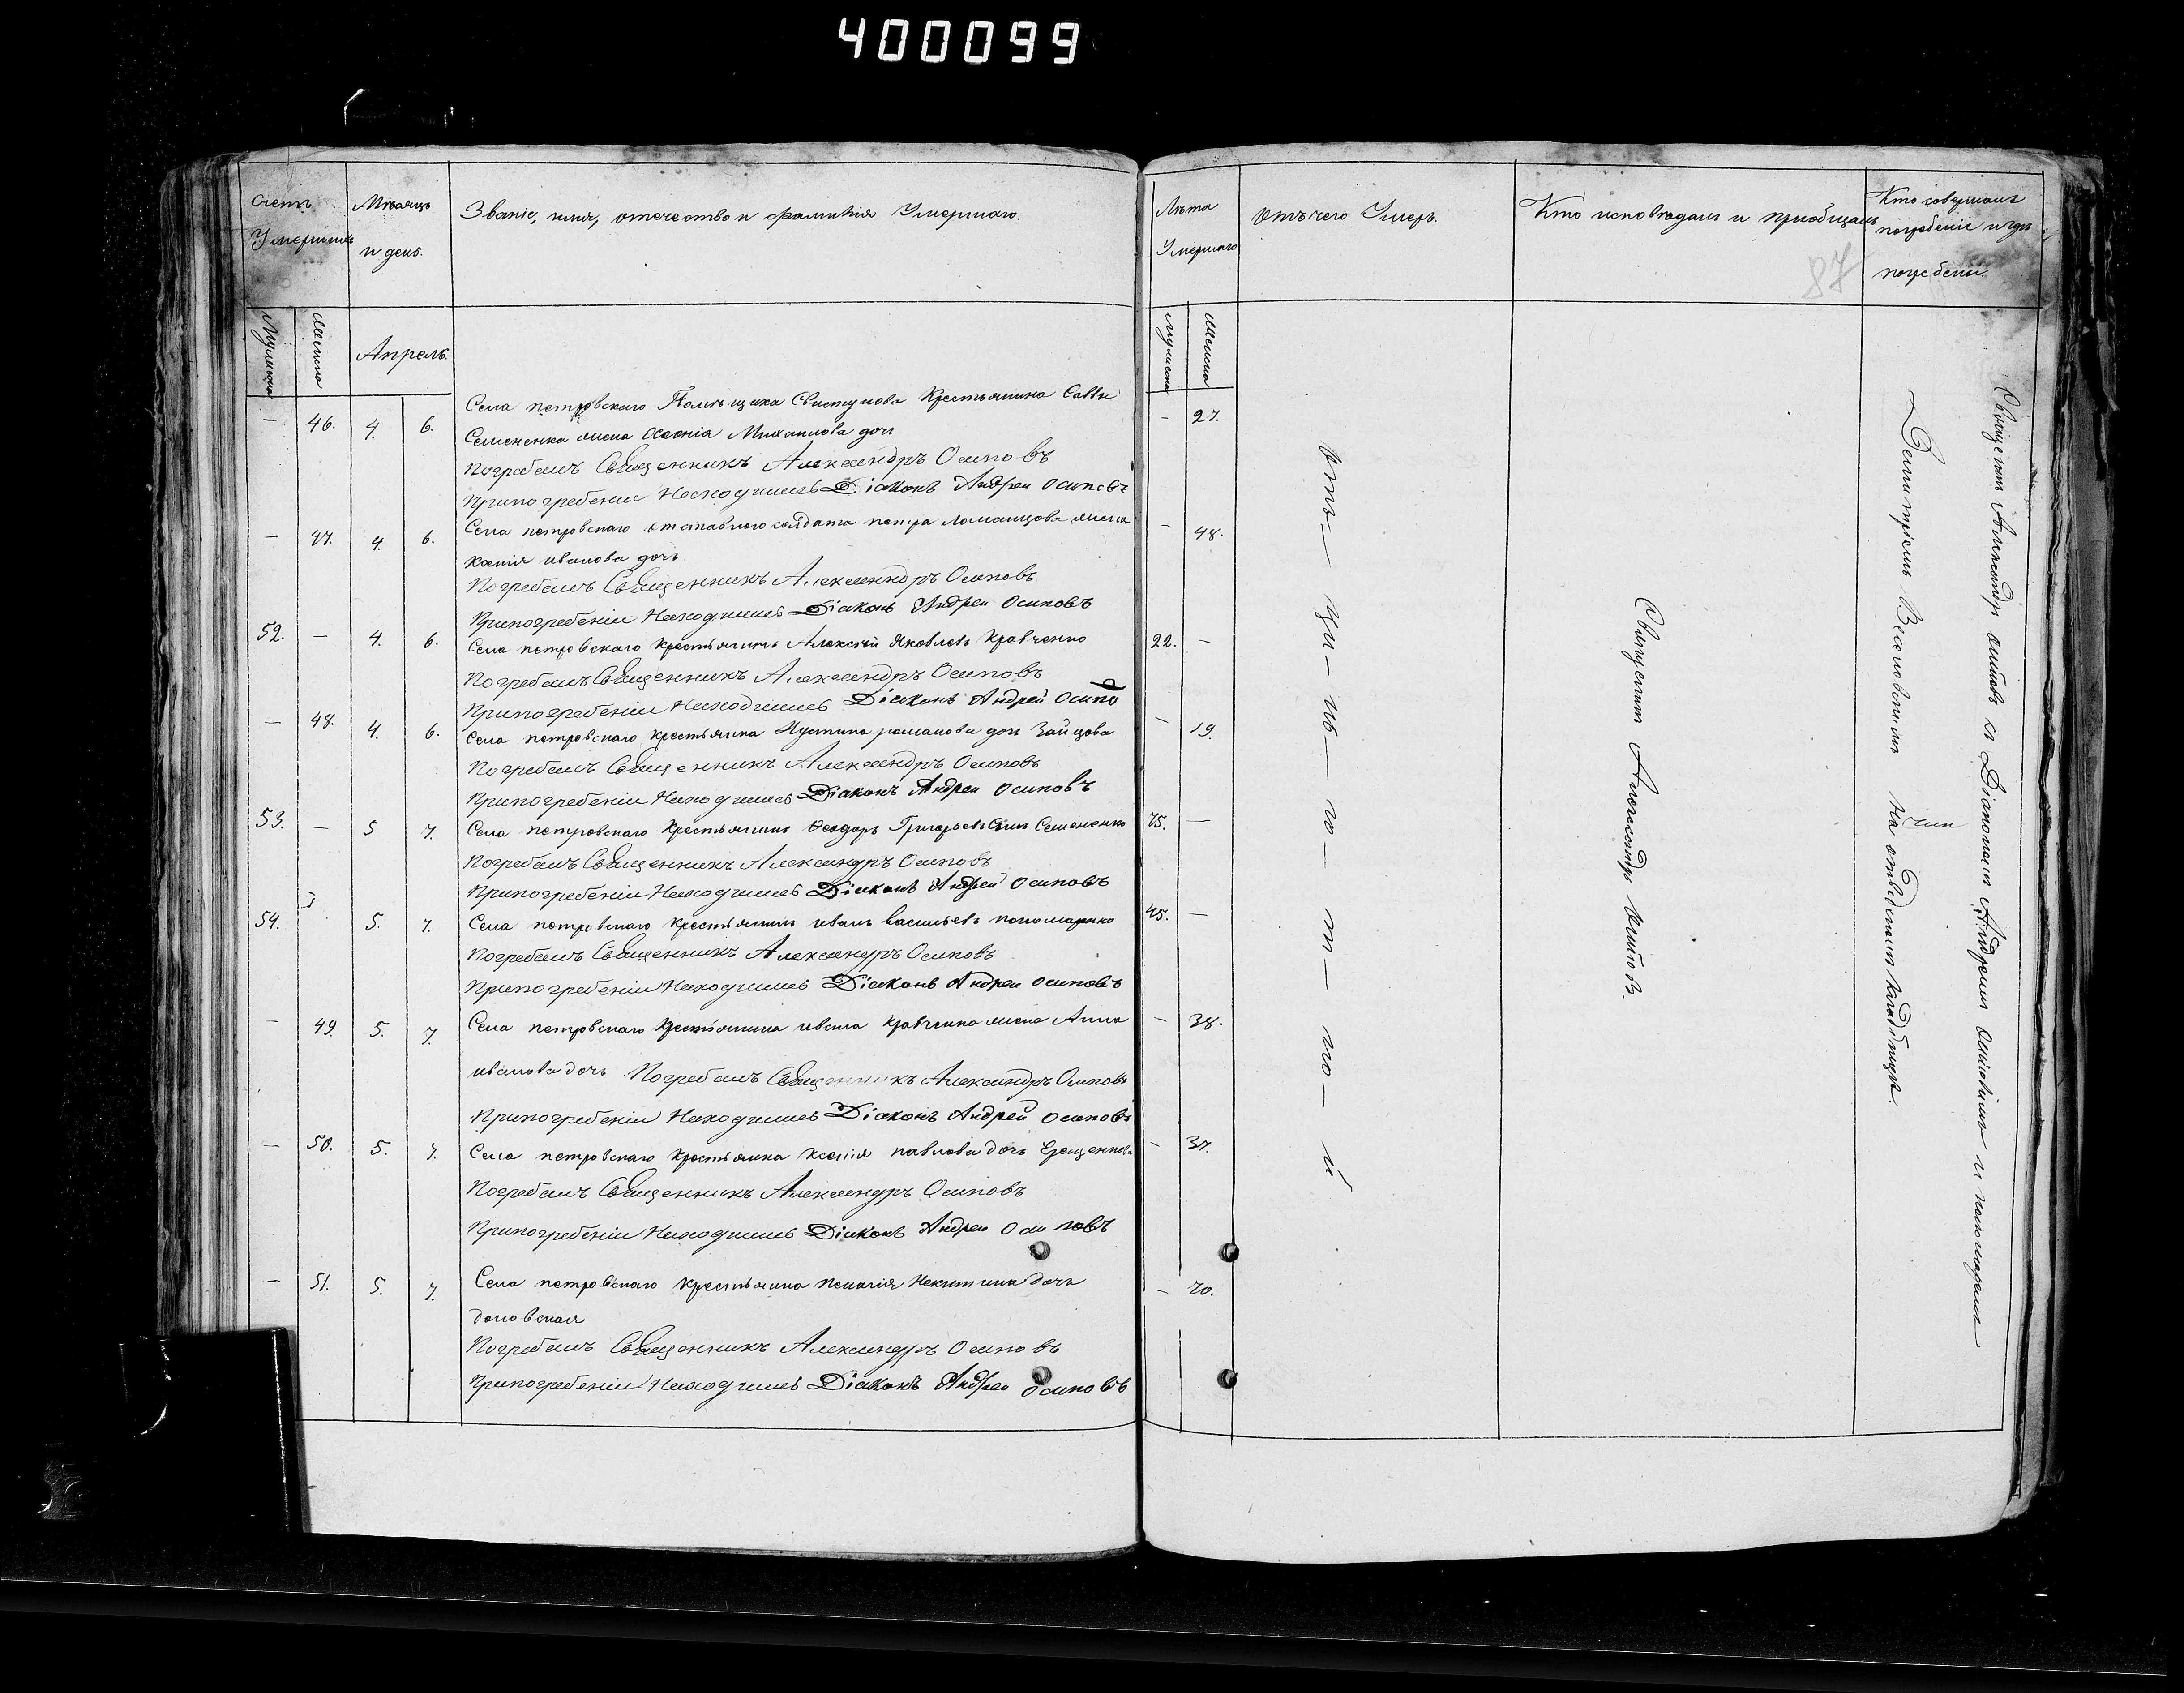 400099
Счетъ Умершихъ
Мѣсяцъ и день.
Званіе, имя, отечество и фамилія Умершаго.
Лѣта Умершаго
Отъ чего Умеръ.
Кто исповѣдалъ и пріобщалъ
Кто совершалъ погребеніе и гдѣ погребены.
87
Мужеска
Женска
Апрель.
Мужеска
Женска
— 46. 4. 6. Села петровскаго Помѣщика Свистунова Крестьянина Саввы — 27.
Семененка жена Ксенія Михаилова дочь
Погребалъ Священникъ Александръ Осиповъ
При погребеніи Находился Діаконъ Андрей Осиповъ
— 47. 4. 6. Села петровскаго отставного солдата петра жена — 48.
Ксенія иванова дочь
Погребалъ Священникъ Александръ Осиповъ
При погребеніи Находился Діаконъ Андрей Осиповъ
52. — 4. 6. Села петровскаго Крестьянинъ Алексѣй Яковлевъ Кравченко 22. —
Погребалъ Священникъ Александръ Осиповъ
При погребеніи Находился Діаконъ Андрей Осипо
— 48. 4. 6. Села петровскаго крестьянка Иустина романова дочь Зайцова — 19.
Погребалъ Священникъ Александръ Осиповъ
При погребеніи Находился Діаконъ Андрей Осиповъ
53. — 5 7. Села петровскаго Крестьянинъ Ѳеодоръ Григорьевъ Сынъ Семененко 75. —
Погребалъ Священникъ Александръ Осиповъ
При погребеніи Находился Діаконъ Андрей Осиповъ
54. 5. 7. Села петровскаго Крестьянинъ иванъ васильевъ пономаренко 45. —
Погребалъ Священникъ Александръ Осиповъ
При погребеніи Находился Діаконъ Андрей Осиповъ
— 49. 5. 7. Села петровскаго Крестьянина ивана Кравченка жена Анна — 38.
иванова дочь Погребалъ Священникъ Александръ Осиповъ
При погребеніи Находился Діаконъ Андрей Осиповъ
— 50. 5. 7. Села петровскаго Крестьянка Ксенія павлова дочь — 37.
Погребалъ Священникъ Александръ Осиповъ
При погребеніи Находился Діаконъ Андрей Осиповъ
— 51. 5. 7. Села петровскаго Крестьянка Никитина дочь — 70.
Погребалъ Священникъ Александръ Осиповъ
При погребеніи Находился Діаконъ Андрей Осиповъ
отъ — цы — нь — го — т — но — й
Священникъ Александръ Осиповъ.
Священникъ Александръ Осиповъ съ Діакономъ Андреемъ Осиповымъ и пономаремъ
Димитріемъ на отведенномъ кладбищѣ.